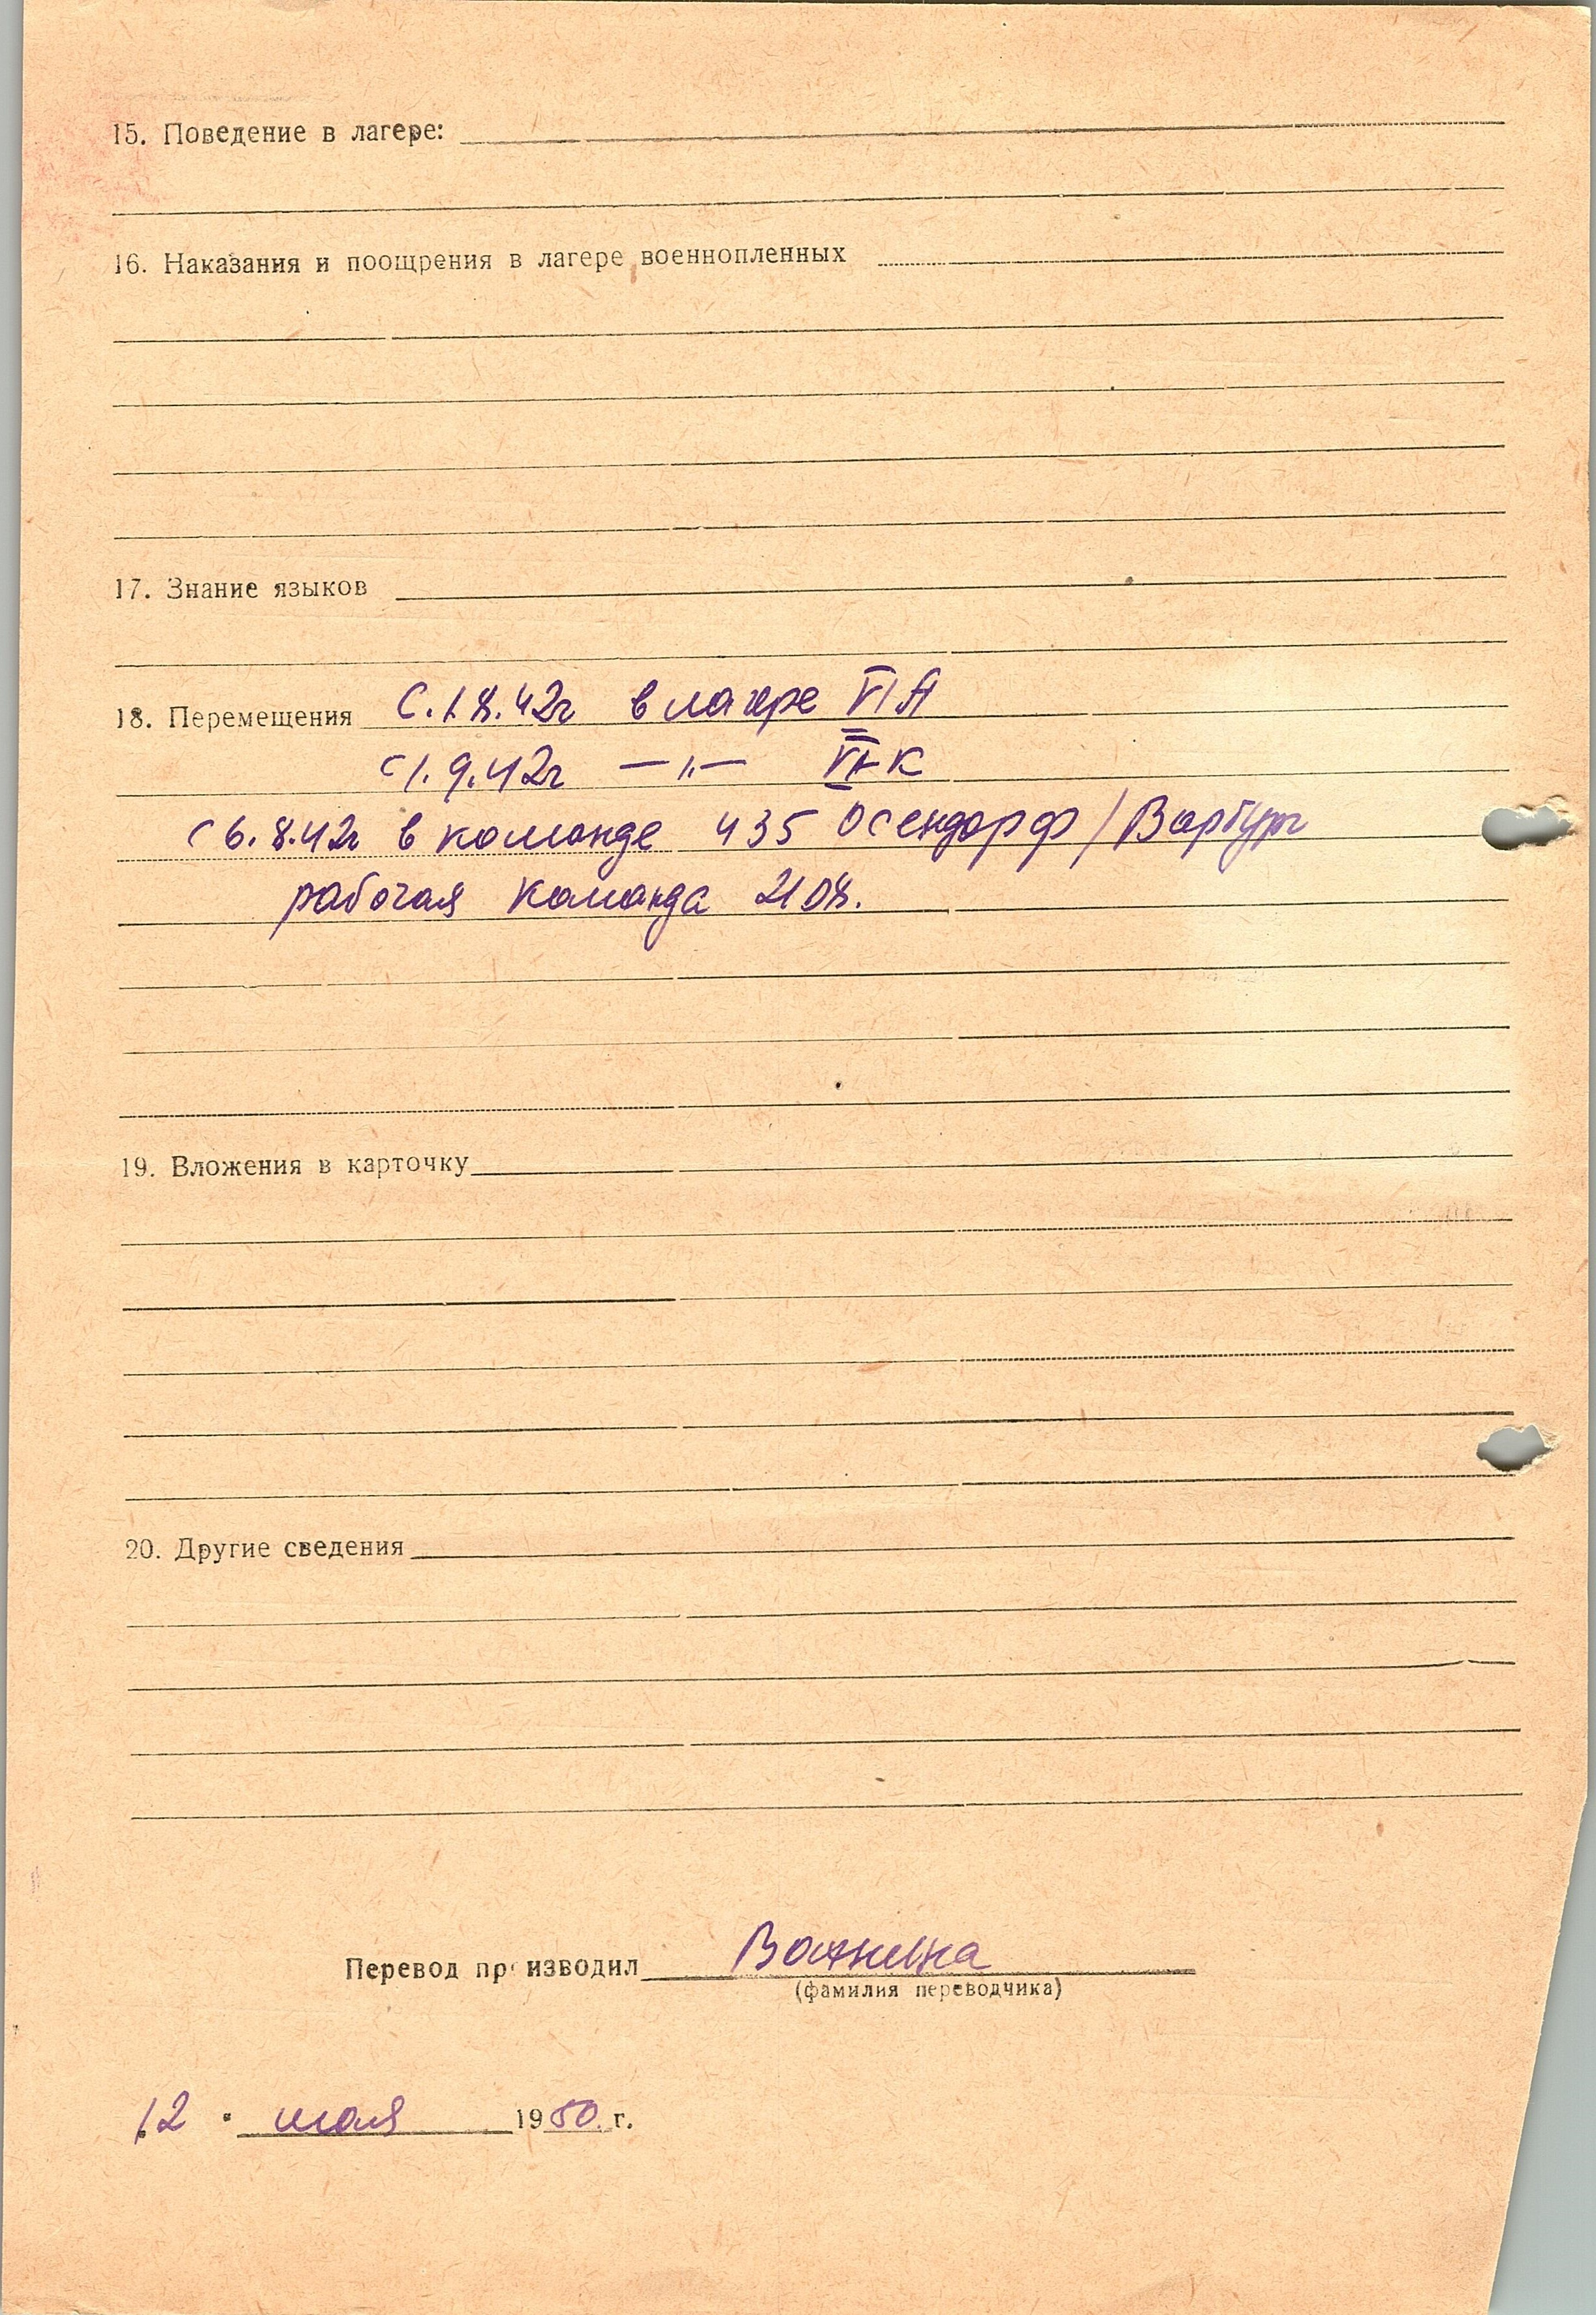 15. Поведение в лагере:
16. Наказания и поощрения в лагере военнопленных
17. Знание языков
18. Перемещения С. 1.8.42г в лагере VI A
с 1.9.42г —„— VI K
с 6.8.42г в команде 435 Осендорф/Варбург
рабочая команда 2108.
19. Вложения в карточку
20. Другие сведения
Перевод производил
(фамилия переводчика)
12 " мая 1950 г.